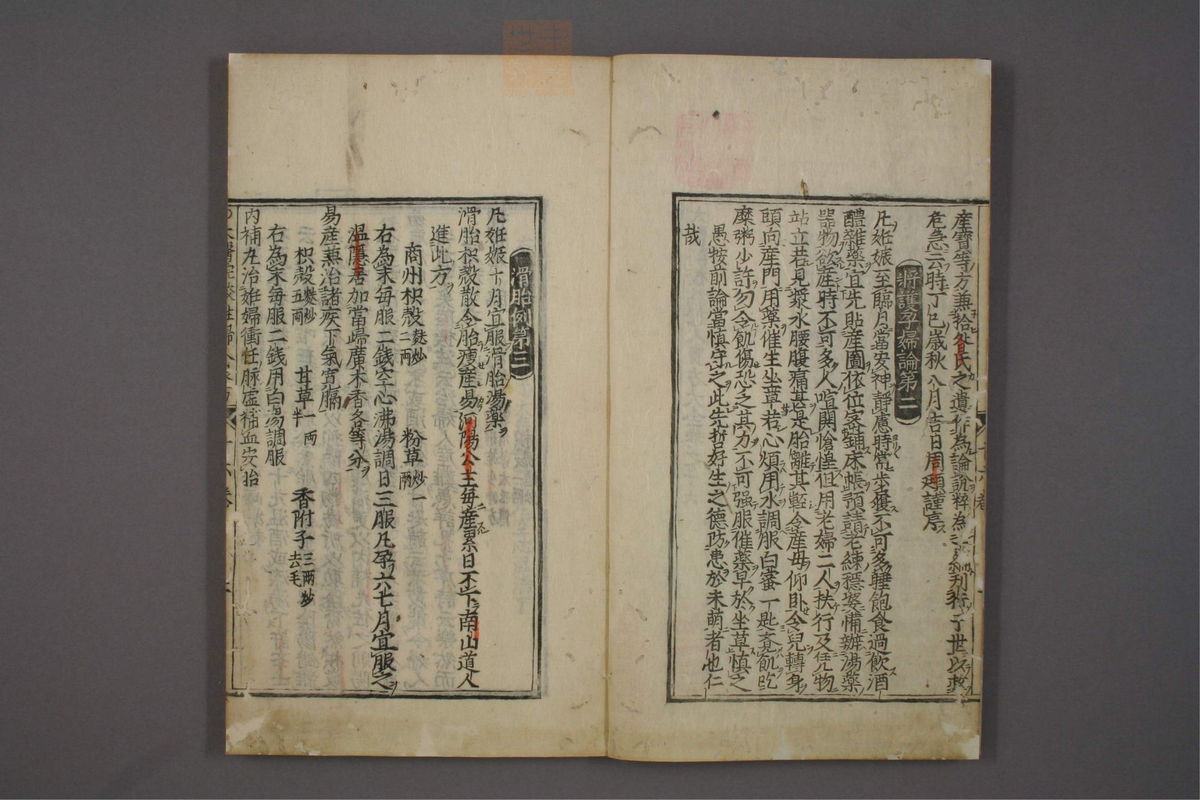 產寶等方兼治朱氏之遺行為論說粹為刋行于世以救
危急云時丁巳歲秋八月吉日周頲謹序
將護孕婦論第二
凡姙娠至臨月當安神靜慮時常步履不可多睡飽食過飲酒
醴雜藥宜先貼產圖依位密鋪床帳預請老練穩婆備辦湯藥
器物欲產時不可多人喧鬨愴惶但用老婦二人扶行及凭物
站立若見漿水腰腹痛甚是胎離其經令產母仰卧令兒轉身
頭向產門用藥催生坐草若心煩用水調服白蜜一匙覔飢吃
糜粥少許勿令飢傷恐乏其力不可强服催藥早於坐草慎之
愚按前論當慎守之此先哲好生之德防患於未萌者也仁
哉
滑胎例第三
凡姙娠十月宜服滑胎湯藥
滑胎枳殼散令胎瘦產易河陽公主每產累日不下南山道人
進此方
商州枳殼二兩麩炒 粉草炒一兩
右為末每服二錢空心沸湯調日三服凡孕六七月宜服之
溫隱居加當歸廣木香各等分
易產兼治諸疾下氣寬膈
枳殼麩炒五兩 甘草一兩半 香附子三兩炒去毛
右為末每服二錢用白湯調服
内補丸治姙婦衝任脉虛補血安胎